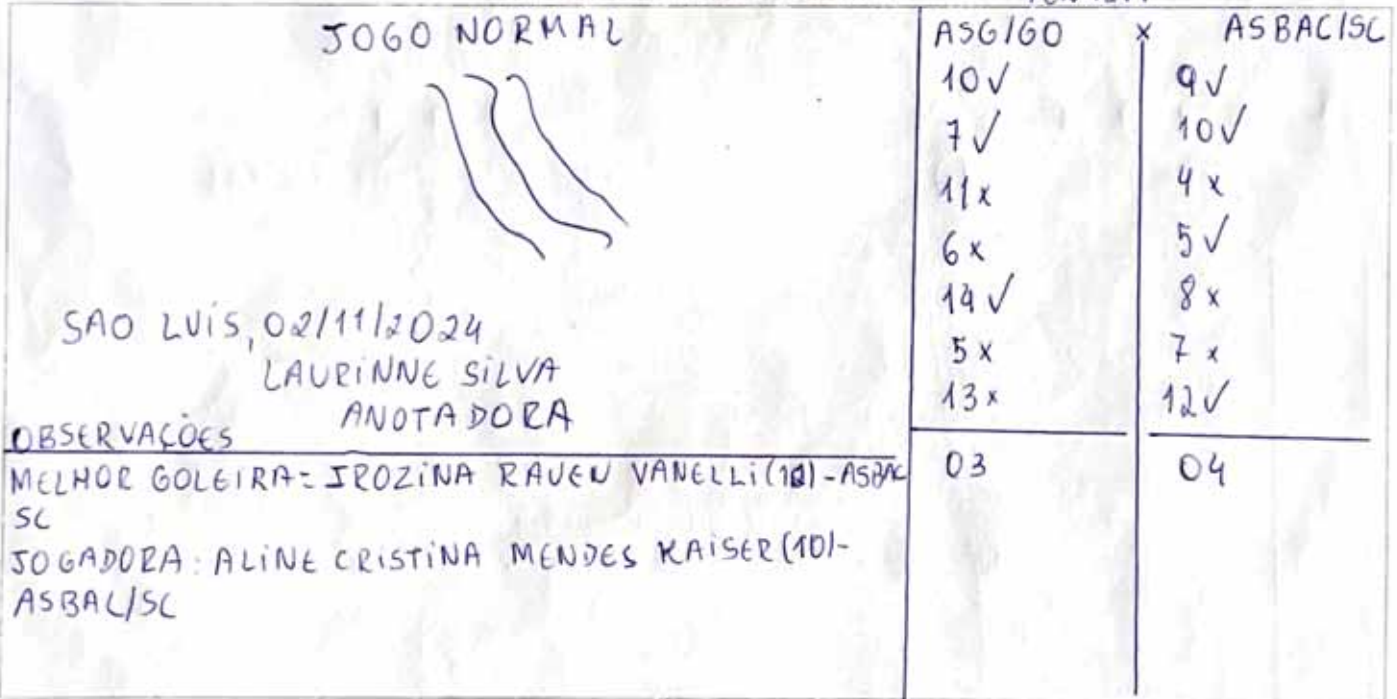 JOGO NORMAL
SAO LUÍS, 02/11/2024
LAURINNE SILVA
ANOTADORA
OBSERVAÇÕES
MELHOR GOLEIRA = IROZINA RAVEN VANELLI (12) - ASBAC
SC
JOGADORA: ALINE CRISTINA MENDES KAISER (10) -
ASBAC/SC
ASG/GO x ASBAC/SC
10 ✓ 9 ✓
7 ✓ 10 ✓
11 x 4 x
6 x 5 ✓
14 ✓ 8 x
5 x 7 x
13 x 12 ✓
03 04